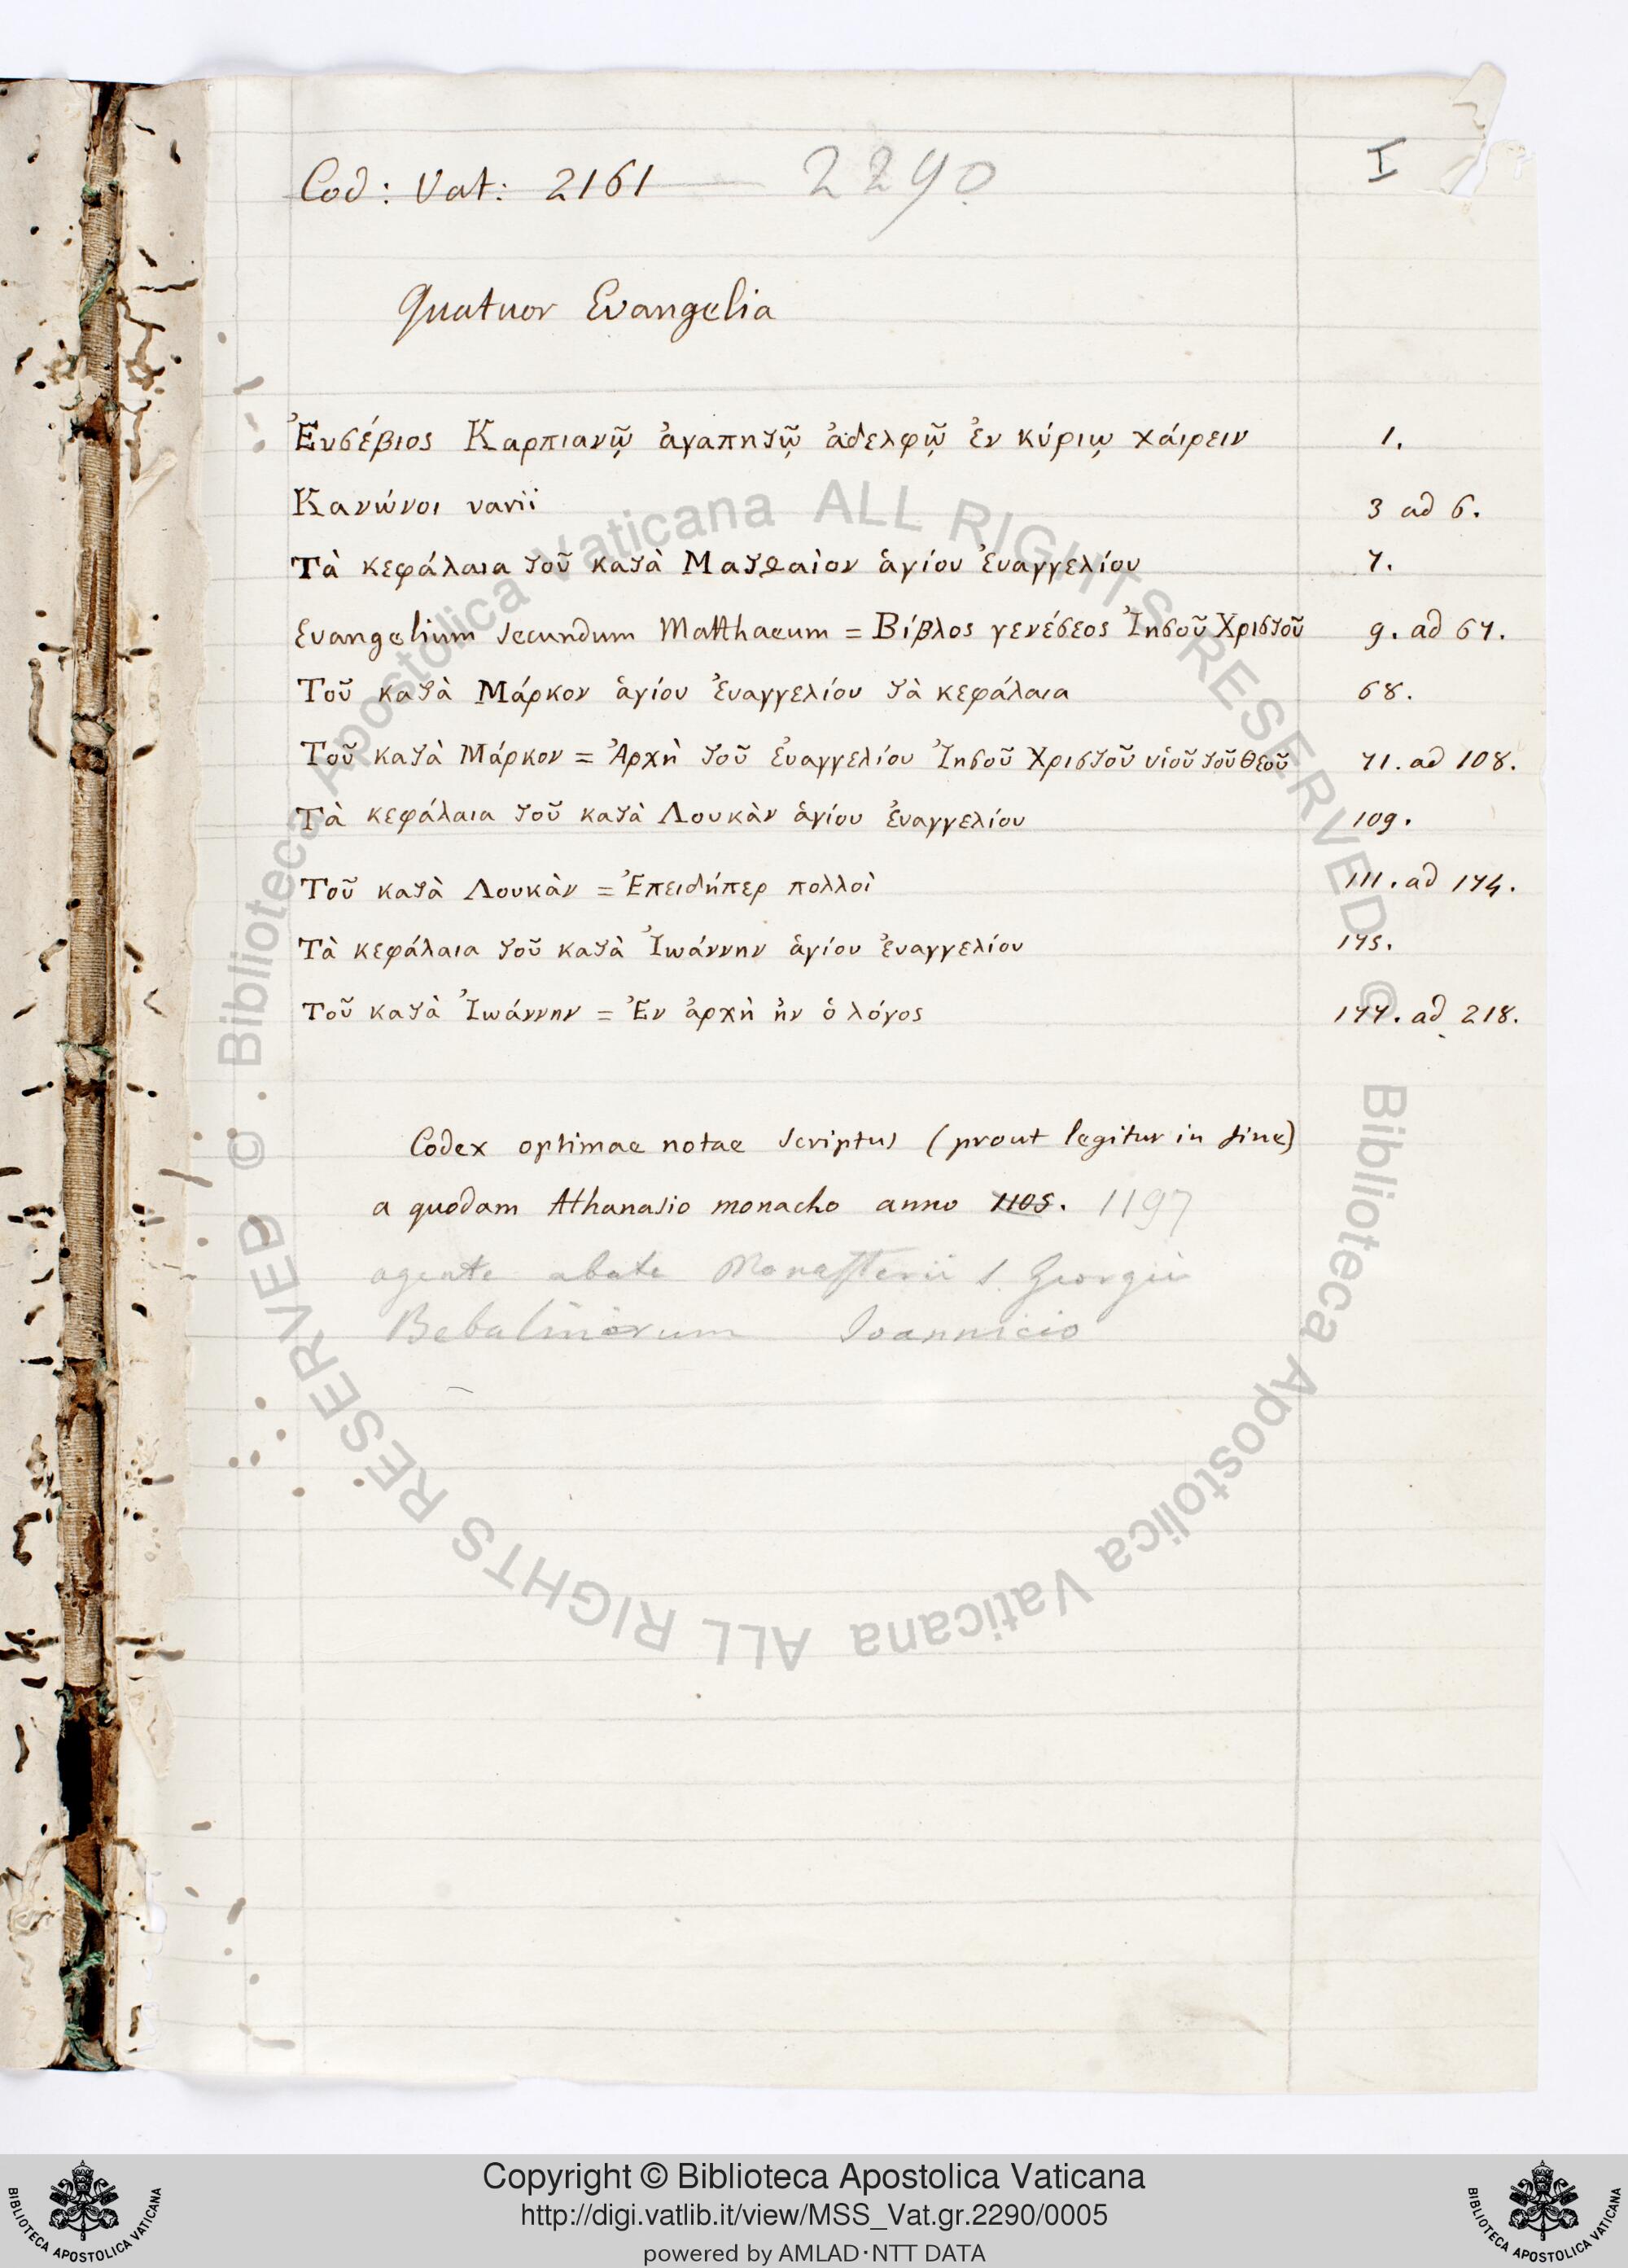 I
Cod: Vat: 2161 — 2290.
Quatuor Evangelia
Ἐυσέβιος Καρπιανῷ ἀγαπητῷ ἀδελφῷ ἐν κύριῳ χάιρειν 1.
Κανώνοι varii 3 ad 6.
Τὰ κεφάλαια τοῦ κατὰ Ματθαὶον ἁγίου Ἐυαγγελίου 7.
Evangelium secundum Matthaeum = Βίβλος γενέσεος Ἰησοῦ Χριστοῦ 9. ad 67.
Τοῦ κατὰ Μάρκον ἁγίου Ἐυαγγελίου τὰ κεφάλαια 68.
Τοῦ κατὰ Μάρκον = Ἀρχὴ τοῦ ἐυαγγελίου Ἰησοῦ Χριστοῦ υἱοῦ τοῦ Θεοῦ 71. ad 108.
Τὰ κεφάλαια τοῦ κατὰ Λουκὰν ἁγίου ἐυαγγελίου 109.
Τοῦ κατὰ Λουκὰν = Ἐπειδήπερ πολλοὶ 111. ad 174.
Τὰ κεφάλαια τοῦ κατὰ Ἰωάννην ἁγίου ἐυαγγελίου 175.
Τοῦ κατὰ Ἰωάννην = Ἐν ἀρχὴ ἠν ὁ λόγος 177. ad 218.
Codex optimae notae scriptus (prout legitur in fine)
a quodam Athanasio monacho anno 1105. 1197
agente abate Monasterii S. Georgii
Bebalinorum Joannicio
© . Biblioteca Apostolica Vaticana ALL RIGHTS RESERVED © . Biblioteca Apostolica Vaticana ALL RIGHTS RESERVED
Copyright © Biblioteca Apostolica Vaticana
http://digi.vatlib.it/view/MSS_Vat.gr.2290/0005
powered by AMLAD·NTT DATA
BIBLIOTECA APOSTOLICA VATICANA
BIBLIOTECA APOSTOLICA VATICANA